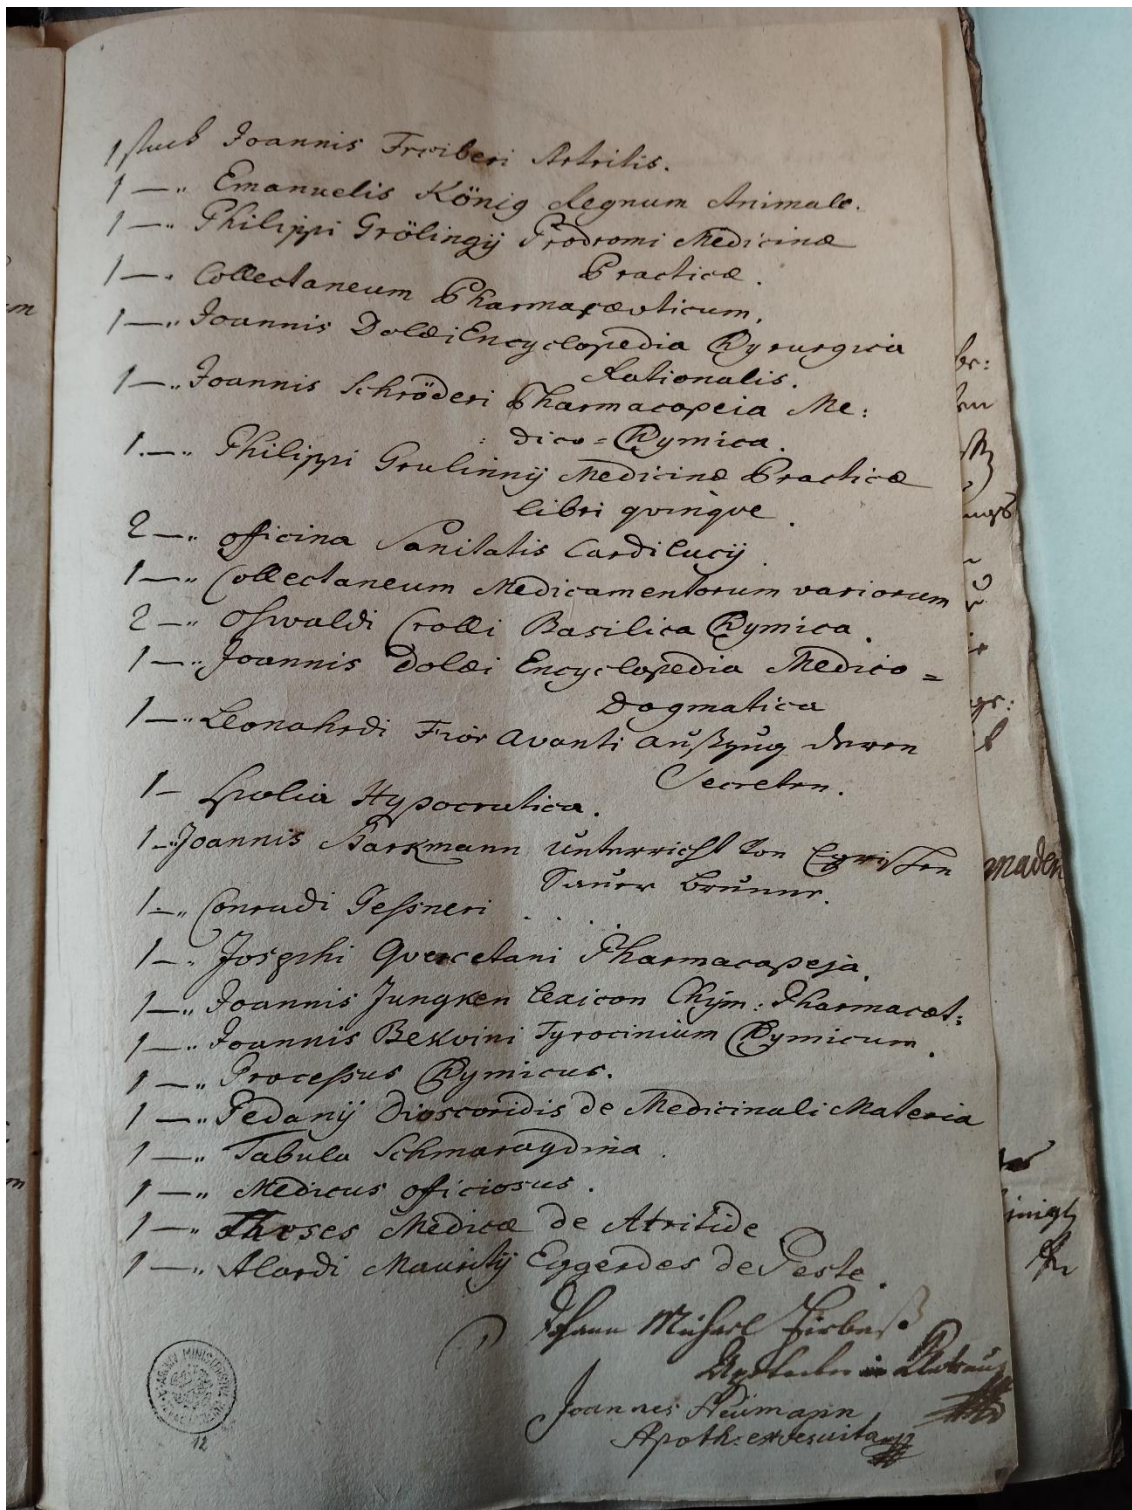 1 stuck Joannis Freiberi Artritis.
1 —" Emanuelis König Regnum Animale.
1 —" Philippi Grölingij Prodromi Medicinæ
Practicæ.
1 —" Collectaneum Pharmacævticum.
1 —" Joannis Dolæi Encyclopedia Chyrurgica
Rationalis.
1 —" Joannis Schröderi Pharmacopeia Me:
dico = Chymica.
1. —" Philippi Grulinnij Medicinæ Practicæ
libri qvinqve.
2 —" officina Sanitatis Cardilucij
1 —" Collectaneum Medicamentorum variorum
2 —" Osswaldi Crolli Basilica Chymica.
1 —" Joannis Dolæi Encyclopedia Medico =
Dogmatica
1 —" Leonahrdi Fior Avanti Außzug deren
Secreten.
1 — Hypocratica.
1 —" Joannis Barkmann Unterricht Von
Sauer Brunnr.
1 —" Conradi Gessneri . . .
1 —" Josephi Qvercetani Pharmacapeja.
1 —" Joannis Jungken Lexicon Chÿm: Pharmacœt:
1 —" Joannis Bekvini Tyrocinium Chymicum.
1 —" Processus Chymicus.
1 —" Pedanij Dioscoridis de Medicinali Materia
1 —" Tabula Schmaragdina.
1 —" Medicus officiosus.
1 —" Theses Medicæ de Atritide
1 —" Alardi Mauritij Eggerdes de Peste.
Johann Michael
Apothecker in
Joannes Neümann
Apoth: exJesuita
12